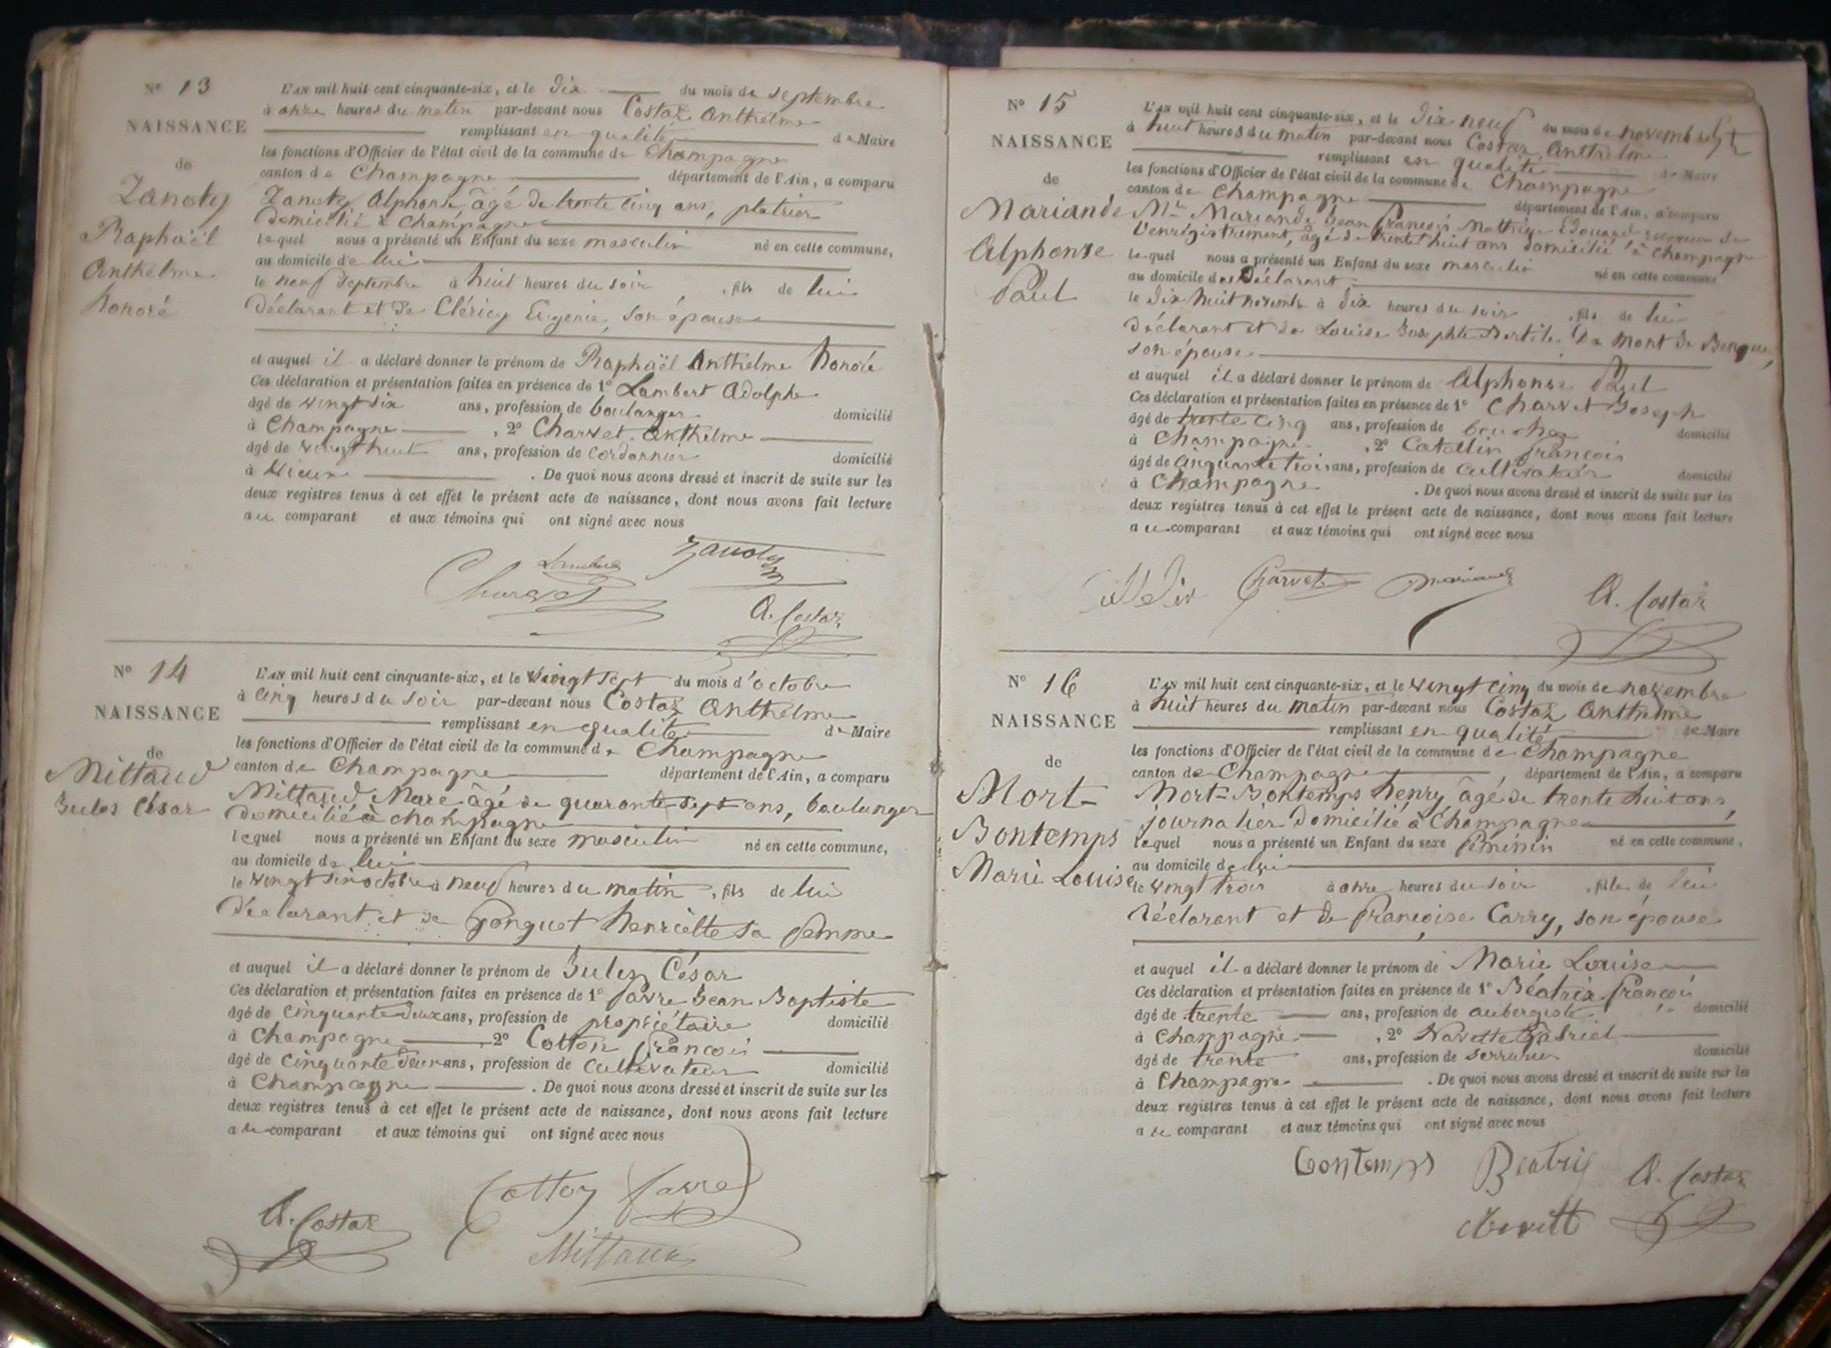 N° 13
NAISSANCE
de
Zanoty
Raphaël
Anthelme
honoré
L'AN mil huit cent cinquante-six, et le dix du mois de septembre
à onze heures du matin par-devant nous Costaz Anthelme
remplissant en qualité de Maire
les fonctions d'Officier de l'état civil de la commune de Champagne
canton de Champagne département de l'Ain, a comparu
Zanoty Alphonse âgé de trente cinq ans, platrier
domicilié à Champagne
lequel nous a présenté un Enfant du sexe masculin né en cette commune,
au domicile de lui
le neuf septembre à huit heures du soir, fils de lui
déclarant et de Cléricy Eugénie, son épouse
et auquel il a déclaré donner le prénom de Raphaël Anthelme honoré
Ces déclaration et présentation faites en présence de 1° Lambert Adolphe
âgé de vingt six ans, profession de boulanger domicilié
à Champagne, 2° Charvet Anthelme
âgé de vingt huit ans, profession de cordonnier domicilié
à Vieux. De quoi nous avons dressé et inscrit de suite sur les
deux registres tenus à cet effet le présent acte de naissance, dont nous avons fait lecture
au comparant et aux témoins qui ont signé avec nous
Zanoty
Charvet
A. Costaz
N° 14
NAISSANCE
de
Mittaud
Jules César
L'AN mil huit cent cinquante-six, et le vingt sept du mois d'octobre
à cinq heures du soir par-devant nous Costaz Anthelme
remplissant en qualité de Maire
les fonctions d'Officier de l'état civil de la commune de Champagne
canton de Champagne département de l'Ain, a comparu
Mittaud Marc âgé de quarante sept ans, boulanger
domicilié à champagne
lequel nous a présenté un Enfant du sexe masculin né en cette commune,
au domicile de lui
le vingt six octobre à neuf heures du matin, fils de lui
déclarant et de Gonguet henriette sa femme
et auquel il a déclaré donner le prénom de Jules César
Ces déclaration et présentation faites en présence de 1° favre Jean Baptiste
âgé de cinquante deux ans, profession de propriétaire domicilié
à Champagne, 2° Cotton françois
âgé de cinquante deux ans, profession de cultivateur domicilié
à Champagne. De quoi nous avons dressé et inscrit de suite sur les
deux registres tenus à cet effet le présent acte de naissance, dont nous avons fait lecture
au comparant et aux témoins qui ont signé avec nous
Cotton favre
A. Costaz
Mittaud
N° 15
NAISSANCE
de
Mariande
Alphonse
Paul
L'AN mil huit cent cinquante-six, et le dix neuf du mois de novembre
à huit heures du matin par-devant nous Costaz Anthelme
remplissant en qualité de Maire
les fonctions d'Officier de l'état civil de la commune de Champagne
canton de Champagne département de l'Ain, a comparu
Mr Mariande Jean françois Mathieu Edouard receveur de
l'enregistrement, âgé de trente huit ans domicilié à Champagne
lequel nous a présenté un Enfant du sexe masculin né en cette commune
au domicile de déclarant
le dix huit novembre à dix heures du soir, fils de lui
déclarant et de Louise Josephte De Mont de
son épouse
et auquel il a déclaré donner le prénom de Alphonse Paul
Ces déclaration et présentation faites en présence de 1° Charvet Joseph
âgé de trente cinq ans, profession de boucher domicilié
à Champagne, 2° Catallin françois
âgé de cinquante trois ans, profession de cultivateur domicilié
à Champagne. De quoi nous avons dressé et inscrit de suite sur les
deux registres tenus à cet effet le présent acte de naissance, dont nous avons fait lecture
au comparant et aux témoins qui ont signé avec nous
Charvet
A. Costaz
N° 16
NAISSANCE
de
Mort-
Bontemps
Marie Louise
L'AN mil huit cent cinquante-six, et le vingt cinq du mois de novembre
à huit heures du matin par-devant nous Costaz Anthelme
remplissant en qualité de Maire
les fonctions d'Officier de l'état civil de la commune de Champagne
canton de Champagne département de l'Ain, a comparu
Mort-Bontemps henry âgé de trente huit ans,
journalier domicilié à Champagne
lequel nous a présenté un Enfant du sexe féminin né en cette commune,
au domicile de lui
le vingt trois à onze heures du soir, fille de lui
déclarant et de françoise Carry, son épouse
et auquel il a déclaré donner le prénom de Marie Louise
Ces déclaration et présentation faites en présence de 1° Béatrix françois
âgé de trente ans, profession de aubergiste domicilié
à Champagne, 2° Navette Gabriel
âgé de trente ans, profession de serrurier domicilié
à Champagne. De quoi nous avons dressé et inscrit de suite sur les
deux registres tenus à cet effet le présent acte de naissance, dont nous avons fait lecture
au comparant et aux témoins qui ont signé avec nous
Bontemps Beatrix A. Costaz